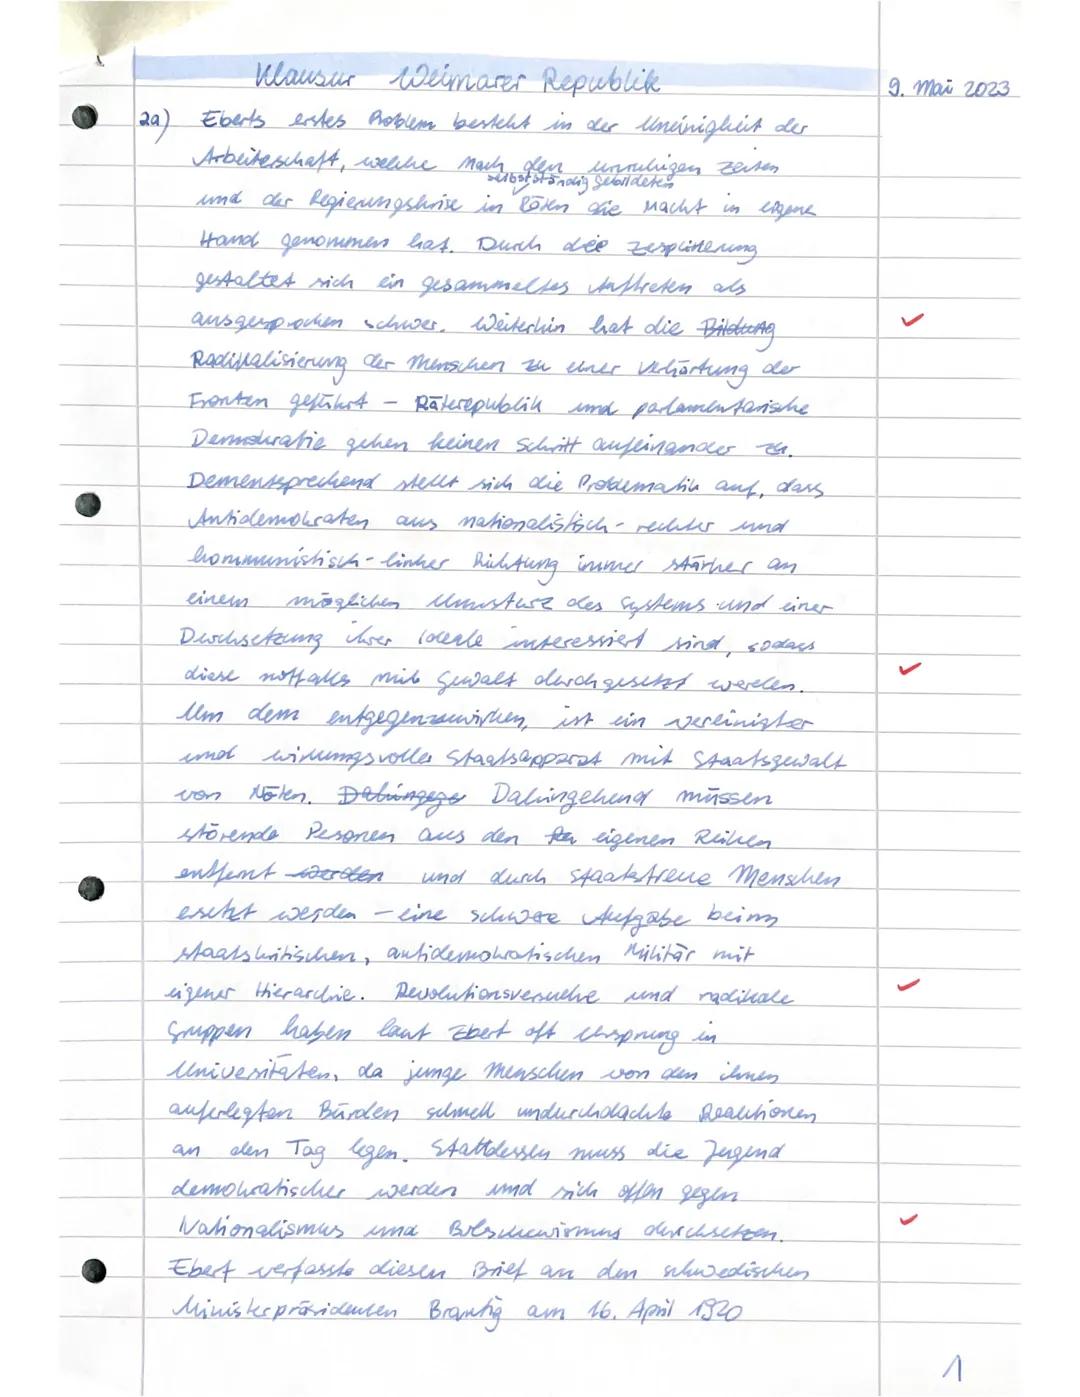 Klausur Weimarer Republik
9. Mai 2023
2a) Eberts erstes Problem besteht in der Uneinigkeit der
Arbeiterschaft, welche nach den unruhigen Zeiten
selbstständig gebildeten
und der Regierungskrise in Räten die Macht in eigene
Hand genommen hat. Durch die Zersplitterung
gestaltet sich ein gesammeltes Auftreten als
ausgesprochen schwer. Weiterhin hat die Bildung
Radikalisierung der Menschen zu einer Verhärtung der
Fronten geführt – Räterepublik und parlamentarische
Demokratie gehen keinen Schritt aufeinander zu.
Dementsprechend stellt sich die Problematik auf, dass
Antidemokraten aus nationalistisch-rechter und
kommunistisch-linker Richtung immer stärker an
einem möglichen Umsturz des Systems und einer
Durchsetzung ihrer Ideale interessiert sind, sodass
diese notfalls mit Gewalt durchgesetzt werden.
Um dem entgegenzuwirken, ist ein vereinigter
und wirkungsvoller Staatsapparat mit Staatsgewalt
von Nöten. Dahingege Dahingehend müssen
störende Personen aus den eigenen Reihen
entfernt werden und durch staatstreue Menschen
ersetzt werden – eine schwere Aufgabe beim
staatskritischen, antidemokratischen Militär mit
eigener Hierarchie. Revolutionsversuche und radikale
Gruppen haben laut Ebert oft Ursprung in
Universitäten, da junge Menschen von den ihnen
auferlegten Bürden schnell undurchdachte Reaktionen
an den Tag legen. Stattdessen muss die Jugend
demokratischer werden und sich offen gegen
Nationalismus und Bolschewismus durchsetzen.
Ebert verfasste diesen Brief an den schwedischen
Ministerpräsidenten Brantig am 16. April 1920
1